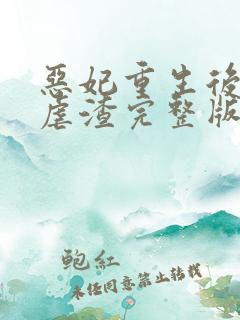 惡妃重生後
虐渣完整版
鮑紅
未任同意禁止转载